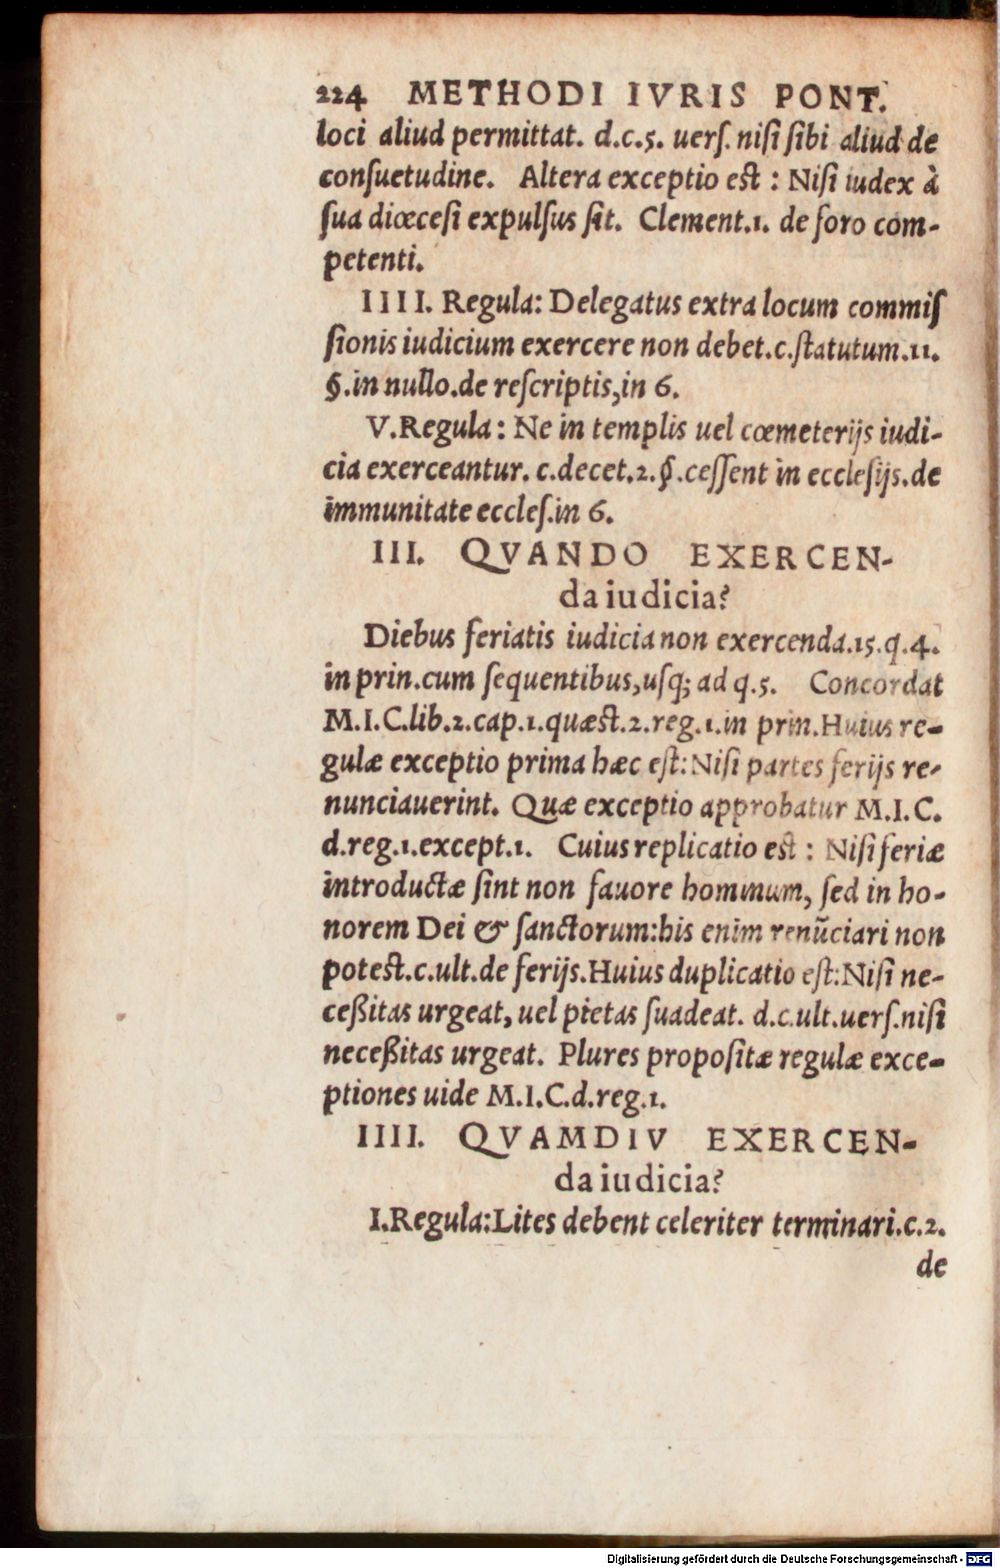 224 METHODI IVRIS PONT.
loci aliud permittat. d.c.5. uerſ. niſi ſibi aliud de
conſuetudine. Altera exceptio eſt : Niſi iudex à
ſua diœceſi expulſus ſit. Clement.1. de foro com-
petenti.
IIII. Regula: Delegatus extra locum commiſ
ſionis iudicium exercere non debet.c.ſtatutum.11.
§.in nullo.de reſcriptis,in 6.
V.Regula: Ne in templis uel cœmeterijs iudi-
cia exerceantur. c.decet.2.§.ceſſent in eccleſijs.de
immunitate eccleſ.in 6.
III. QVANDO EXERCEN-
da iudicia?
Diebus feriatis iudicia non exercenda.15.q.4.
in prin.cum ſequentibus,uſq; ad q.5. Concordat
M.I.C.lib.2.cap.1.quæſt.2.reg.1.in prin.Huius re-
gulæ exceptio prima hæc eſt:Niſi partes ferijs re-
nunciauerint. Quæ exceptio approbatur M.I.C.
d.reg.1.except.1. Cuius replicatio eſt : Niſi feriæ
introductæ ſint non fauore hominum, ſed in ho-
norem Dei & ſanctorum:his enim renũciari non
poteſt.c.ult.de ferijs.Huius duplicatio eſt:Niſi ne-
ceßitas urgeat, uel pietas ſuadeat. d.c.ult.uerſ.niſi
neceßitas urgeat. Plures propoſitæ regulæ exce-
ptiones uide M.I.C.d.reg.1.
IIII. QVAMDIV EXERCEN-
da iudicia?
I.Regula:Lites debent celeriter terminari.c.2.
de
Digitalisierung gefördert durch die Deutsche Forschungsgemeinschaft - DFG